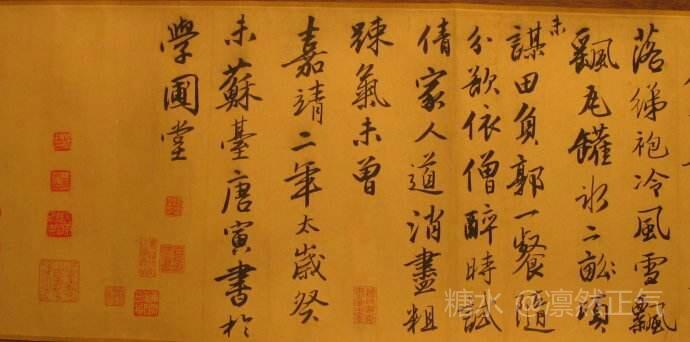 落綈袍冷風雪飄
飄瓦罐冰二畝頃
未謀田負郭一餐隨
分欲依僧醉時試
倩家人道消盡粗
踈氣未曾
嘉靖二年太歲癸
未蘇臺唐寅書於
學圃堂
糖水 @凛然正气